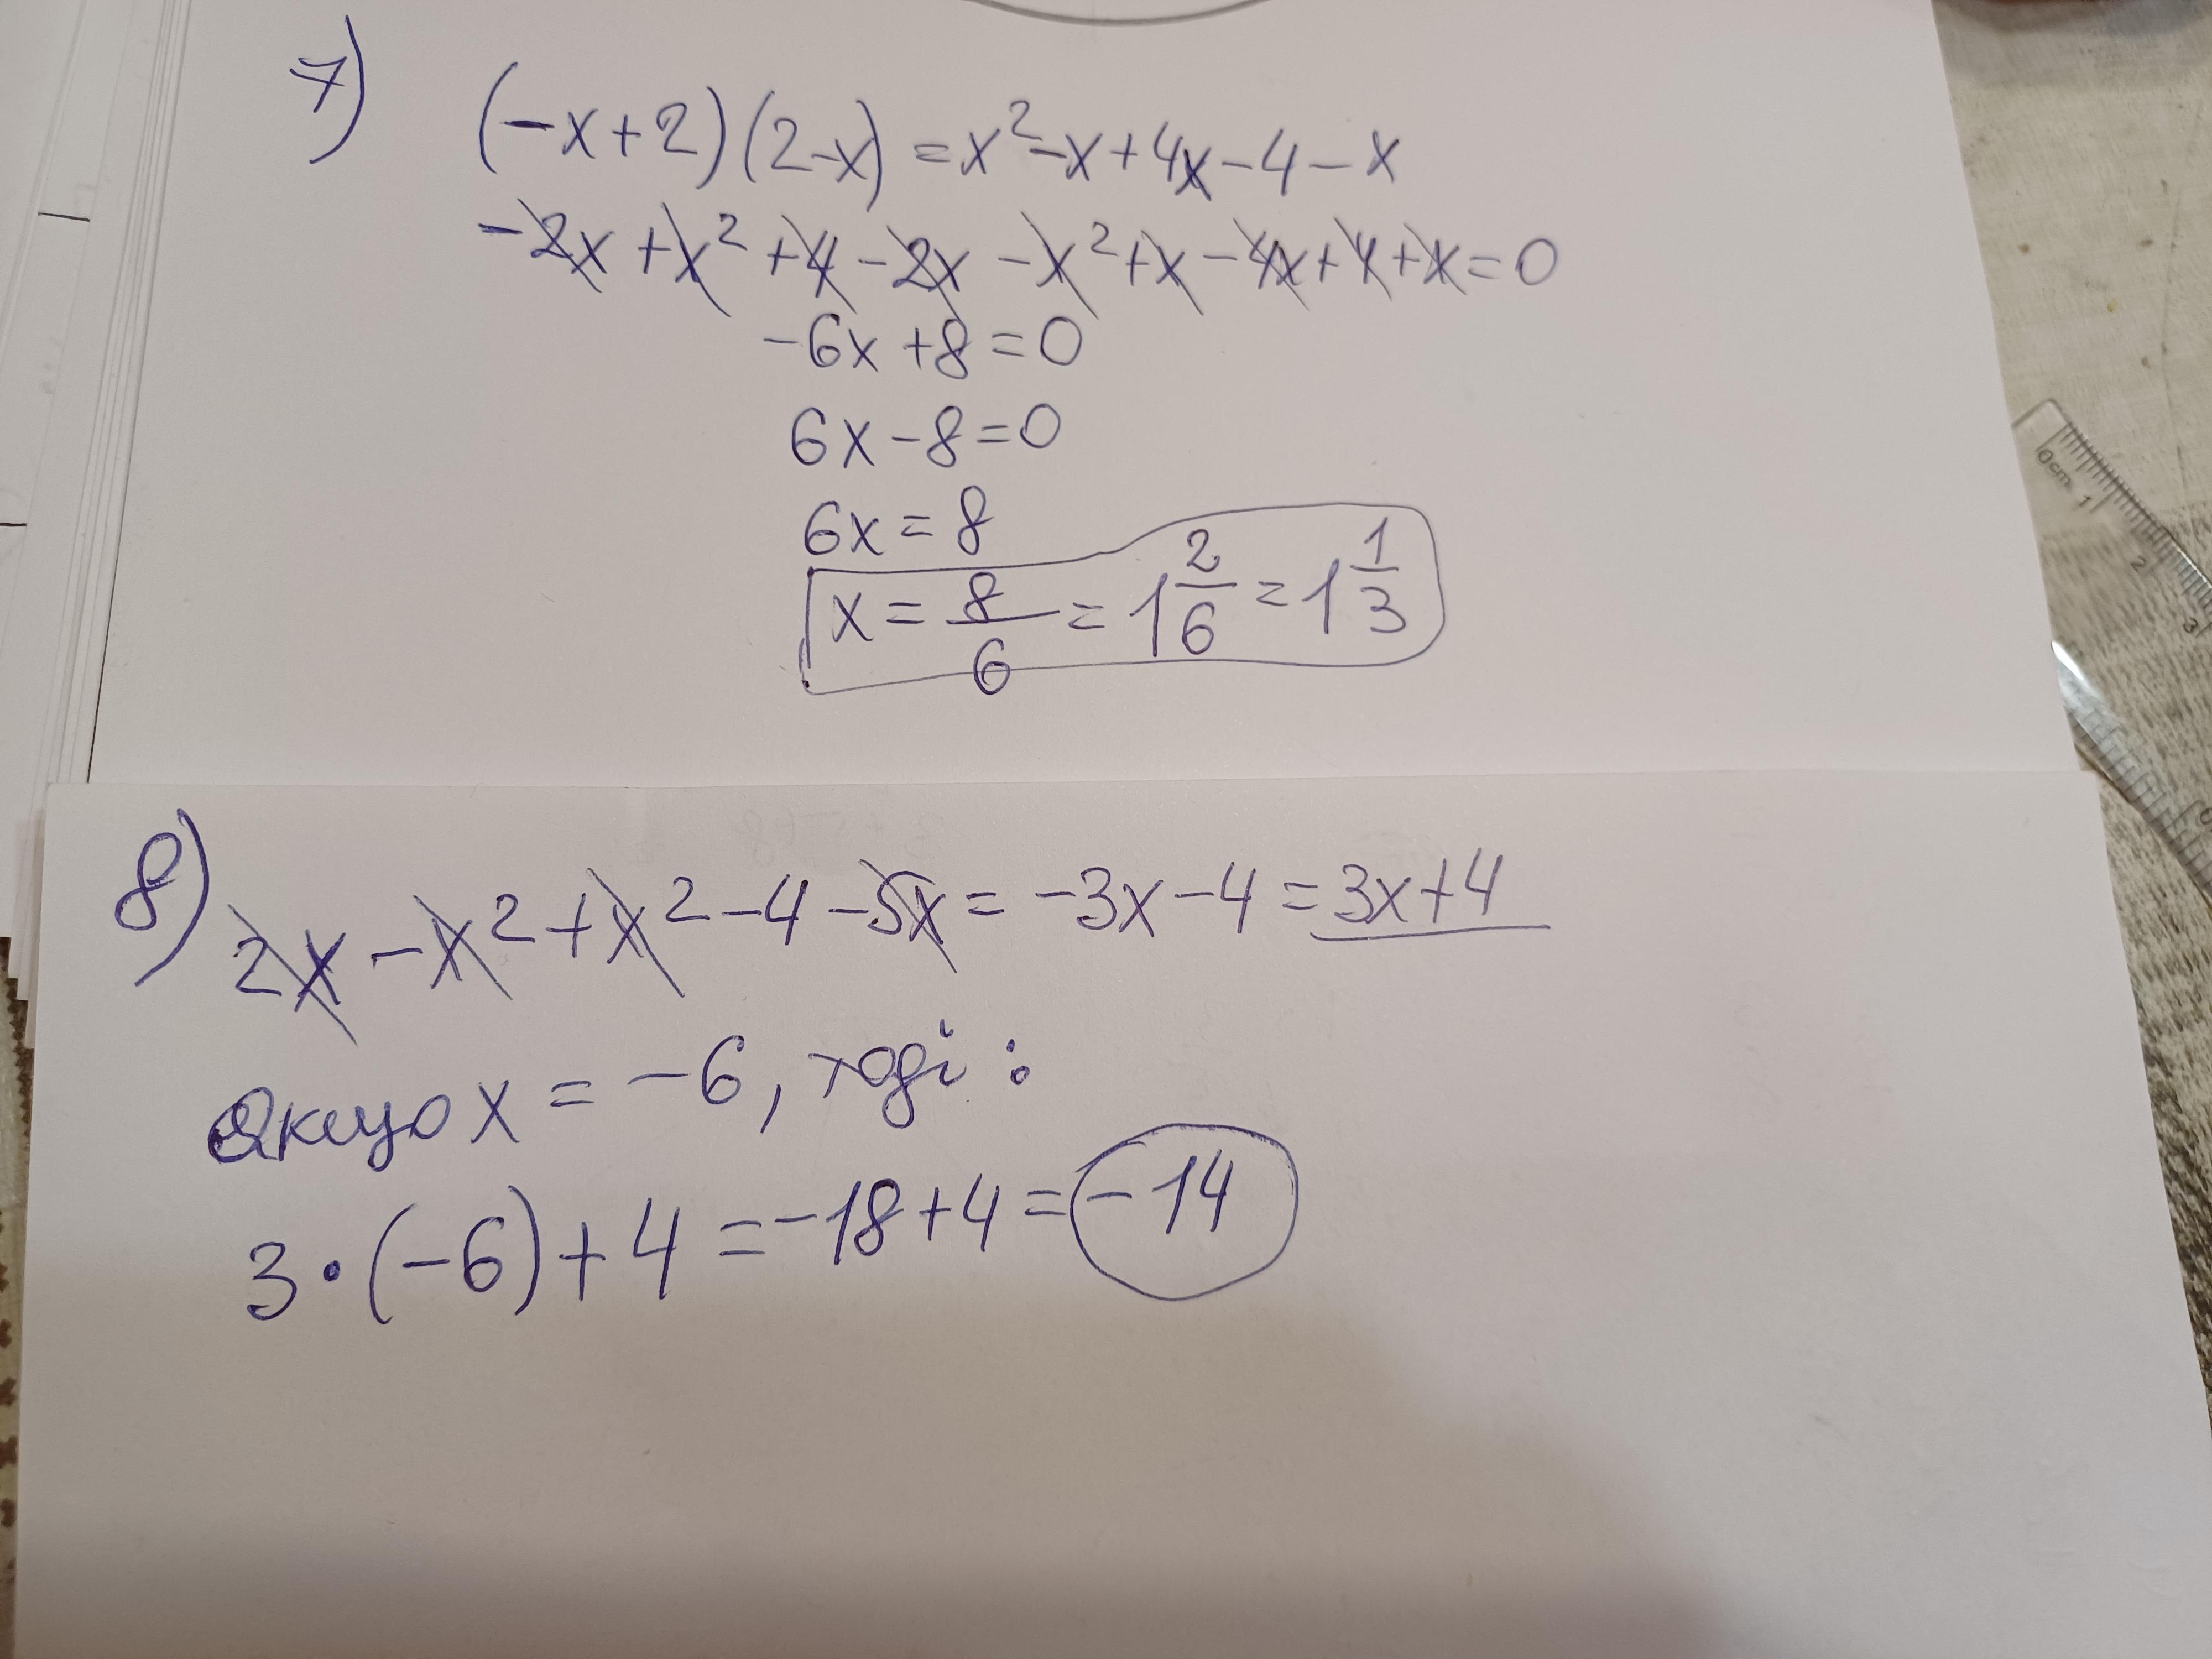 7)
(-x+2)(2-x) = x² - x + 4x - 4 - x
-2x + x² + 4 - 2x - x² + x - 4x + 4 + x = 0
-6x + 8 = 0
6x - 8 = 0
6x = 8
x = 8/6 = 1 2/6 = 1 1/3
0cm 1 2 3
8)
2x - x² + x² - 4 - 5x = -3x - 4 = 3x + 4
Якщо x = -6, тоді :
3 · (-6) + 4 = -18 + 4 = -14